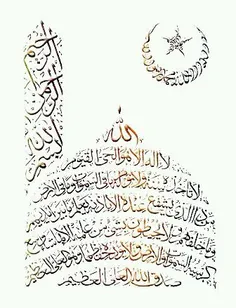 بسم الله الرحمن الرحيم
الله
لا اله الا هو الحي القيوم
لا تاخذه سنة ولا نوم له ما في السموات وما في الارض
من ذا الذي يشفع عنده الا باذنه يعلم ما بين ايديهم
وما خلفهم ولا يحيطون بشيء من علمه الا بما شاء وسع
كرسيه السموات والارض ولا يؤده حفظهما وهو العلي العظيم
صدق الله العلي العظيم